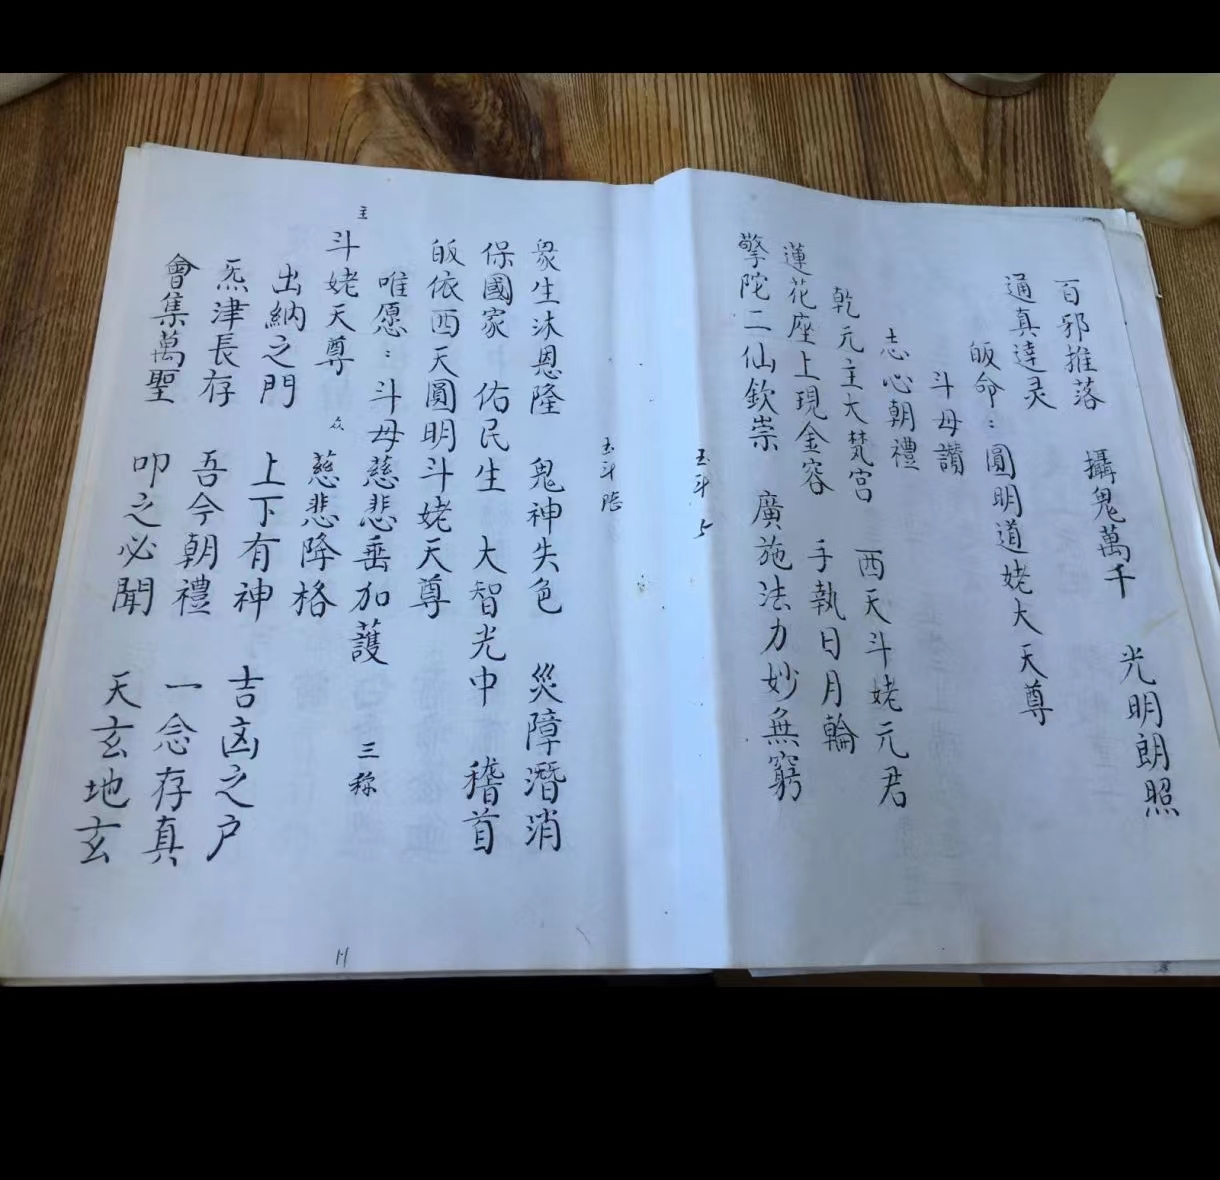 百邪推落　攝鬼萬千　光明朗照
通真達灵
皈命：圓明道姥大天尊
斗母讚
志心朝禮
乾元主大梵宮　西天斗姥元君
蓮花座上現金容　手執日月輪
擎陀二仙欽崇　廣施法力妙無窮
玉斗
衆生沐恩隆　鬼神失色　災障潛消
保國家　佑民生　大智光中　稽首
皈依西天圓明斗姥天尊
唯愿：斗母慈悲垂加護　三称
主
斗姥天尊　众　慈悲降格
出納之門　上下有神　吉凶之户
炁津長存　吾今朝禮　一念存真
會集萬聖　叩之必聞　天玄地玄